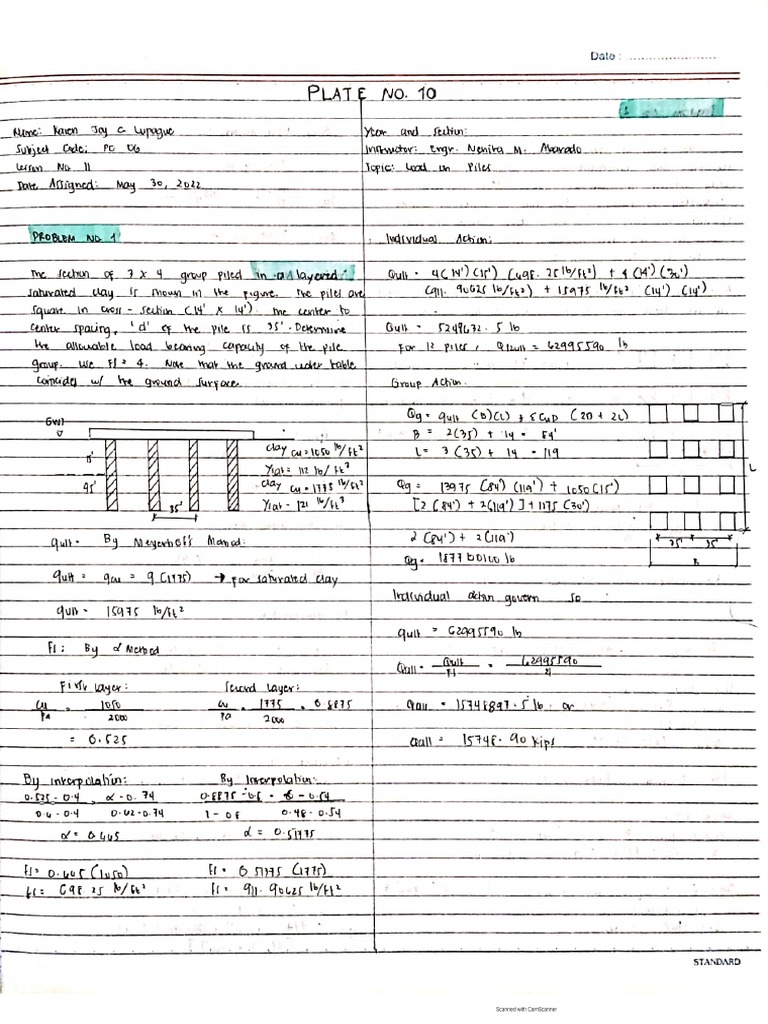 Date :
PLATE NO. 10
Name: Karen Joy C Lupague
Subject Code: PC 06
Lesson No. 11
Date Assigned: May 30, 2022
Year and Section:
Instructor: Engr. Nenita M. Alvarado
Topic: Load on Piles
PROBLEM NO. 1
The section of 3 x 4 group piled in a layered
saturated clay is shown in the figure. The piles are
square in cross-section (14' x 14'). The center to
center spacing, 'd' of the pile is 35'. Determine
the allowable load bearing capacity of the pile
group. Use FS = 4. Note that the ground water table
coincides w/ the ground surface.
GWT
15'
45'
35'
clay cu = 1050 lb/ft²
γsat = 112 lb/ft³
clay cu = 1775 lb/ft²
γsat = 121 lb/ft³
qult - By Meyerhoff Method:
qult = qcu = 9(1775) → for saturated clay
qult = 15975 lb/ft²
Fs: By α Method
First layer:
cu/Pa = 1050/2000
= 0.525
Second layer:
cu/Pa = 1775/2000 = 0.8875
By interpolation:
0.525 - 0.4 / 0.6 - 0.4 = α - 0.74 / 0.62 - 0.74
α = 0.665
By Interpolation:
0.8875 - 0.8 / 1 - 0.8 = α - 0.54 / 0.48 - 0.54
α = 0.51375
fs = 0.665 (1050)
fs = 698.25 lb/ft²
fs = 0.51375 (1775)
fs = 911.90625 lb/ft²
Individual Action:
Qult = 4(14')(15') (698.25 lb/ft²) + 4(14')(30')
(911.90625 lb/ft²) + 15975 lb/ft² (14') (14')
Qult = 5249632.5 lb
For 12 piles, Q12ult = 62995590 lb
Group Action:
Qg = qult (B)(L) + ΣCuD (2B + 2L)
B = 2(35) + 14 = 84'
L = 3(35) + 14 = 119
Qg = 15975 (84')(119') + 1050(15')
[2(84') + 2(119')] + 1775(30')
2(84') + 2(119')
Qg = 187700100 lb
L
35' 35'
B
Individual action govern so
qult = 62995590 lb
Qall = Qult/FS = 62995590/4
Qall = 15748897.5 lb or
Qall = 15748.90 kips
STANDARD
Scanned with CamScanner